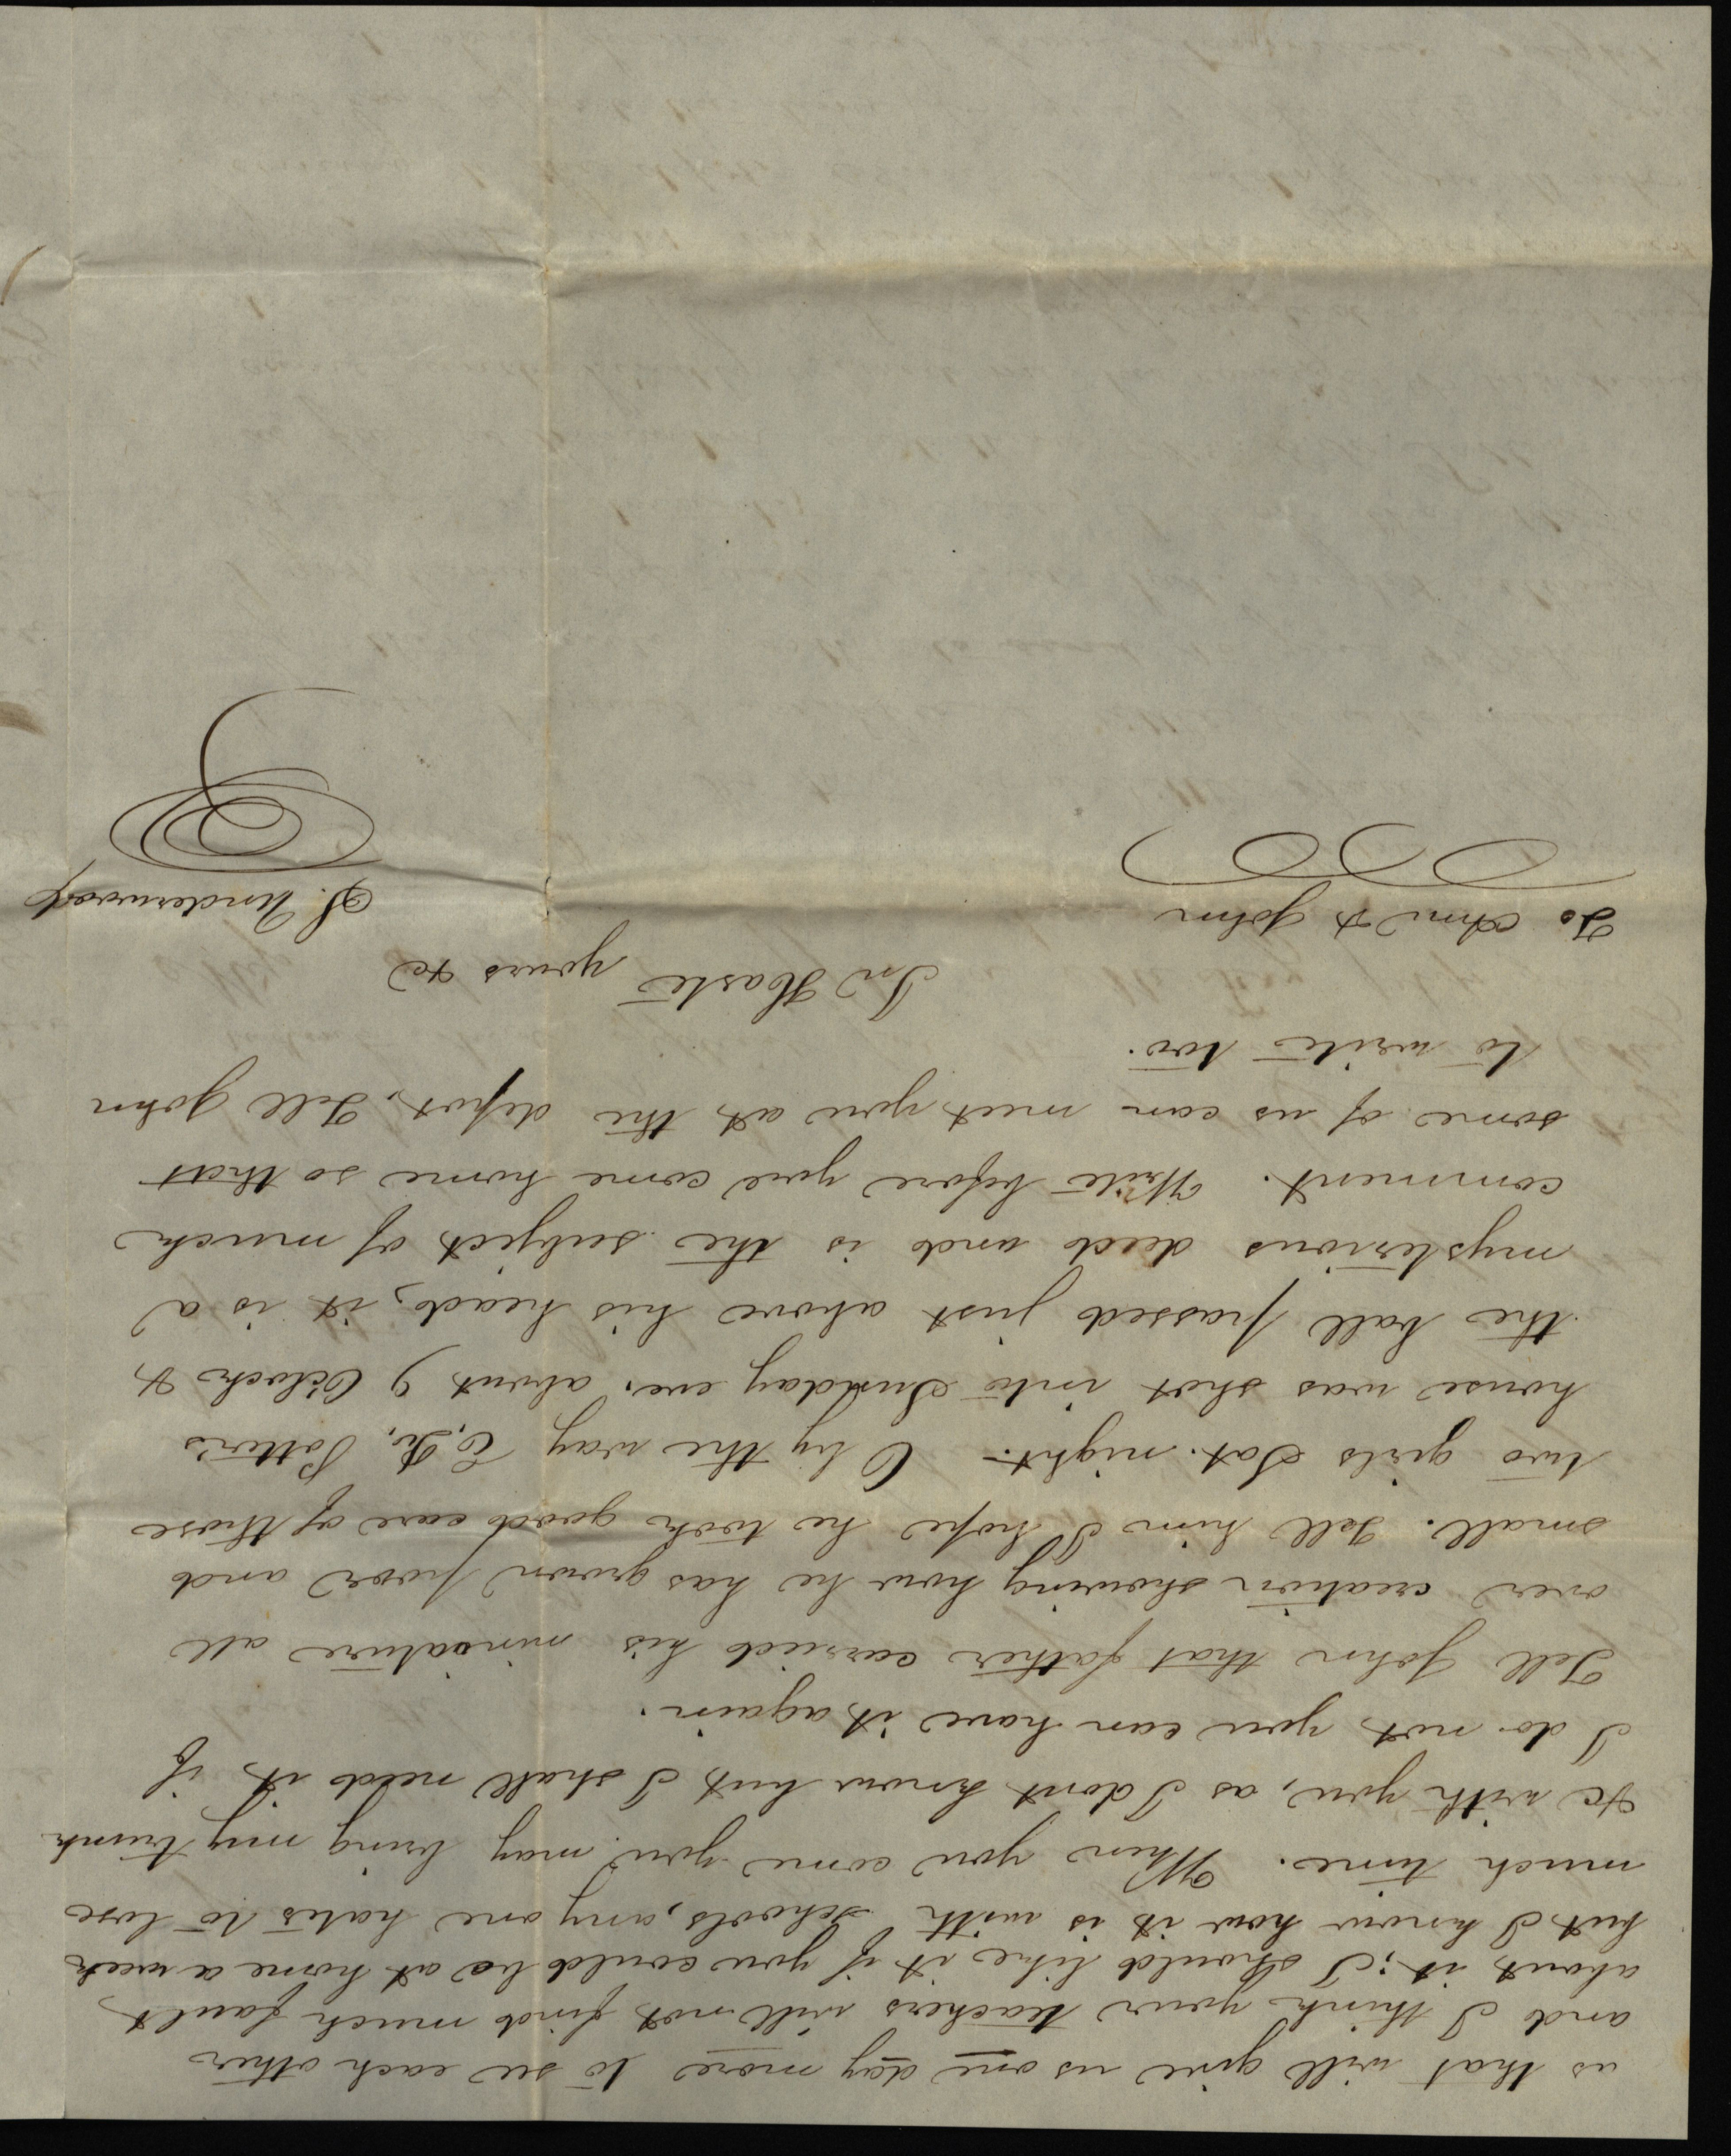 us that will give us one day more to see each other
and I think your teachers will not find much fault
about it; I should like it if you could be at home a week
but I know how it is with schools, any one hates to lose
much time. When you come you may bring my trunk
&c with you, as I dont know but I shall need it if
I do not you can have it again.
Tell John that father carried his minature all
over creation showing how he has grown poor and
small. Tell him I hope he took good care of those
two girls Sat. night. O by the way Potter's
house was shot into Sunday eve. about 9 Oclock &
the ball passed just above his head; it is a
mysterious deed and is the subject of much
comment. Write before you come home so that
some of us can meet you at the depot. Tell John
to write too.
In Haste yours &c
To Ann & John
Underwood